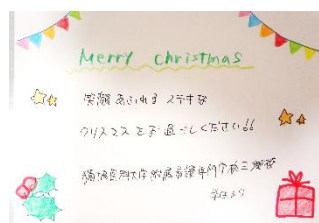 Merry christmas
笑顔あふれる ステキな
クリスマスをお過ごしください!!
獨協医科大学附属看護専門学校三郷校
学生より